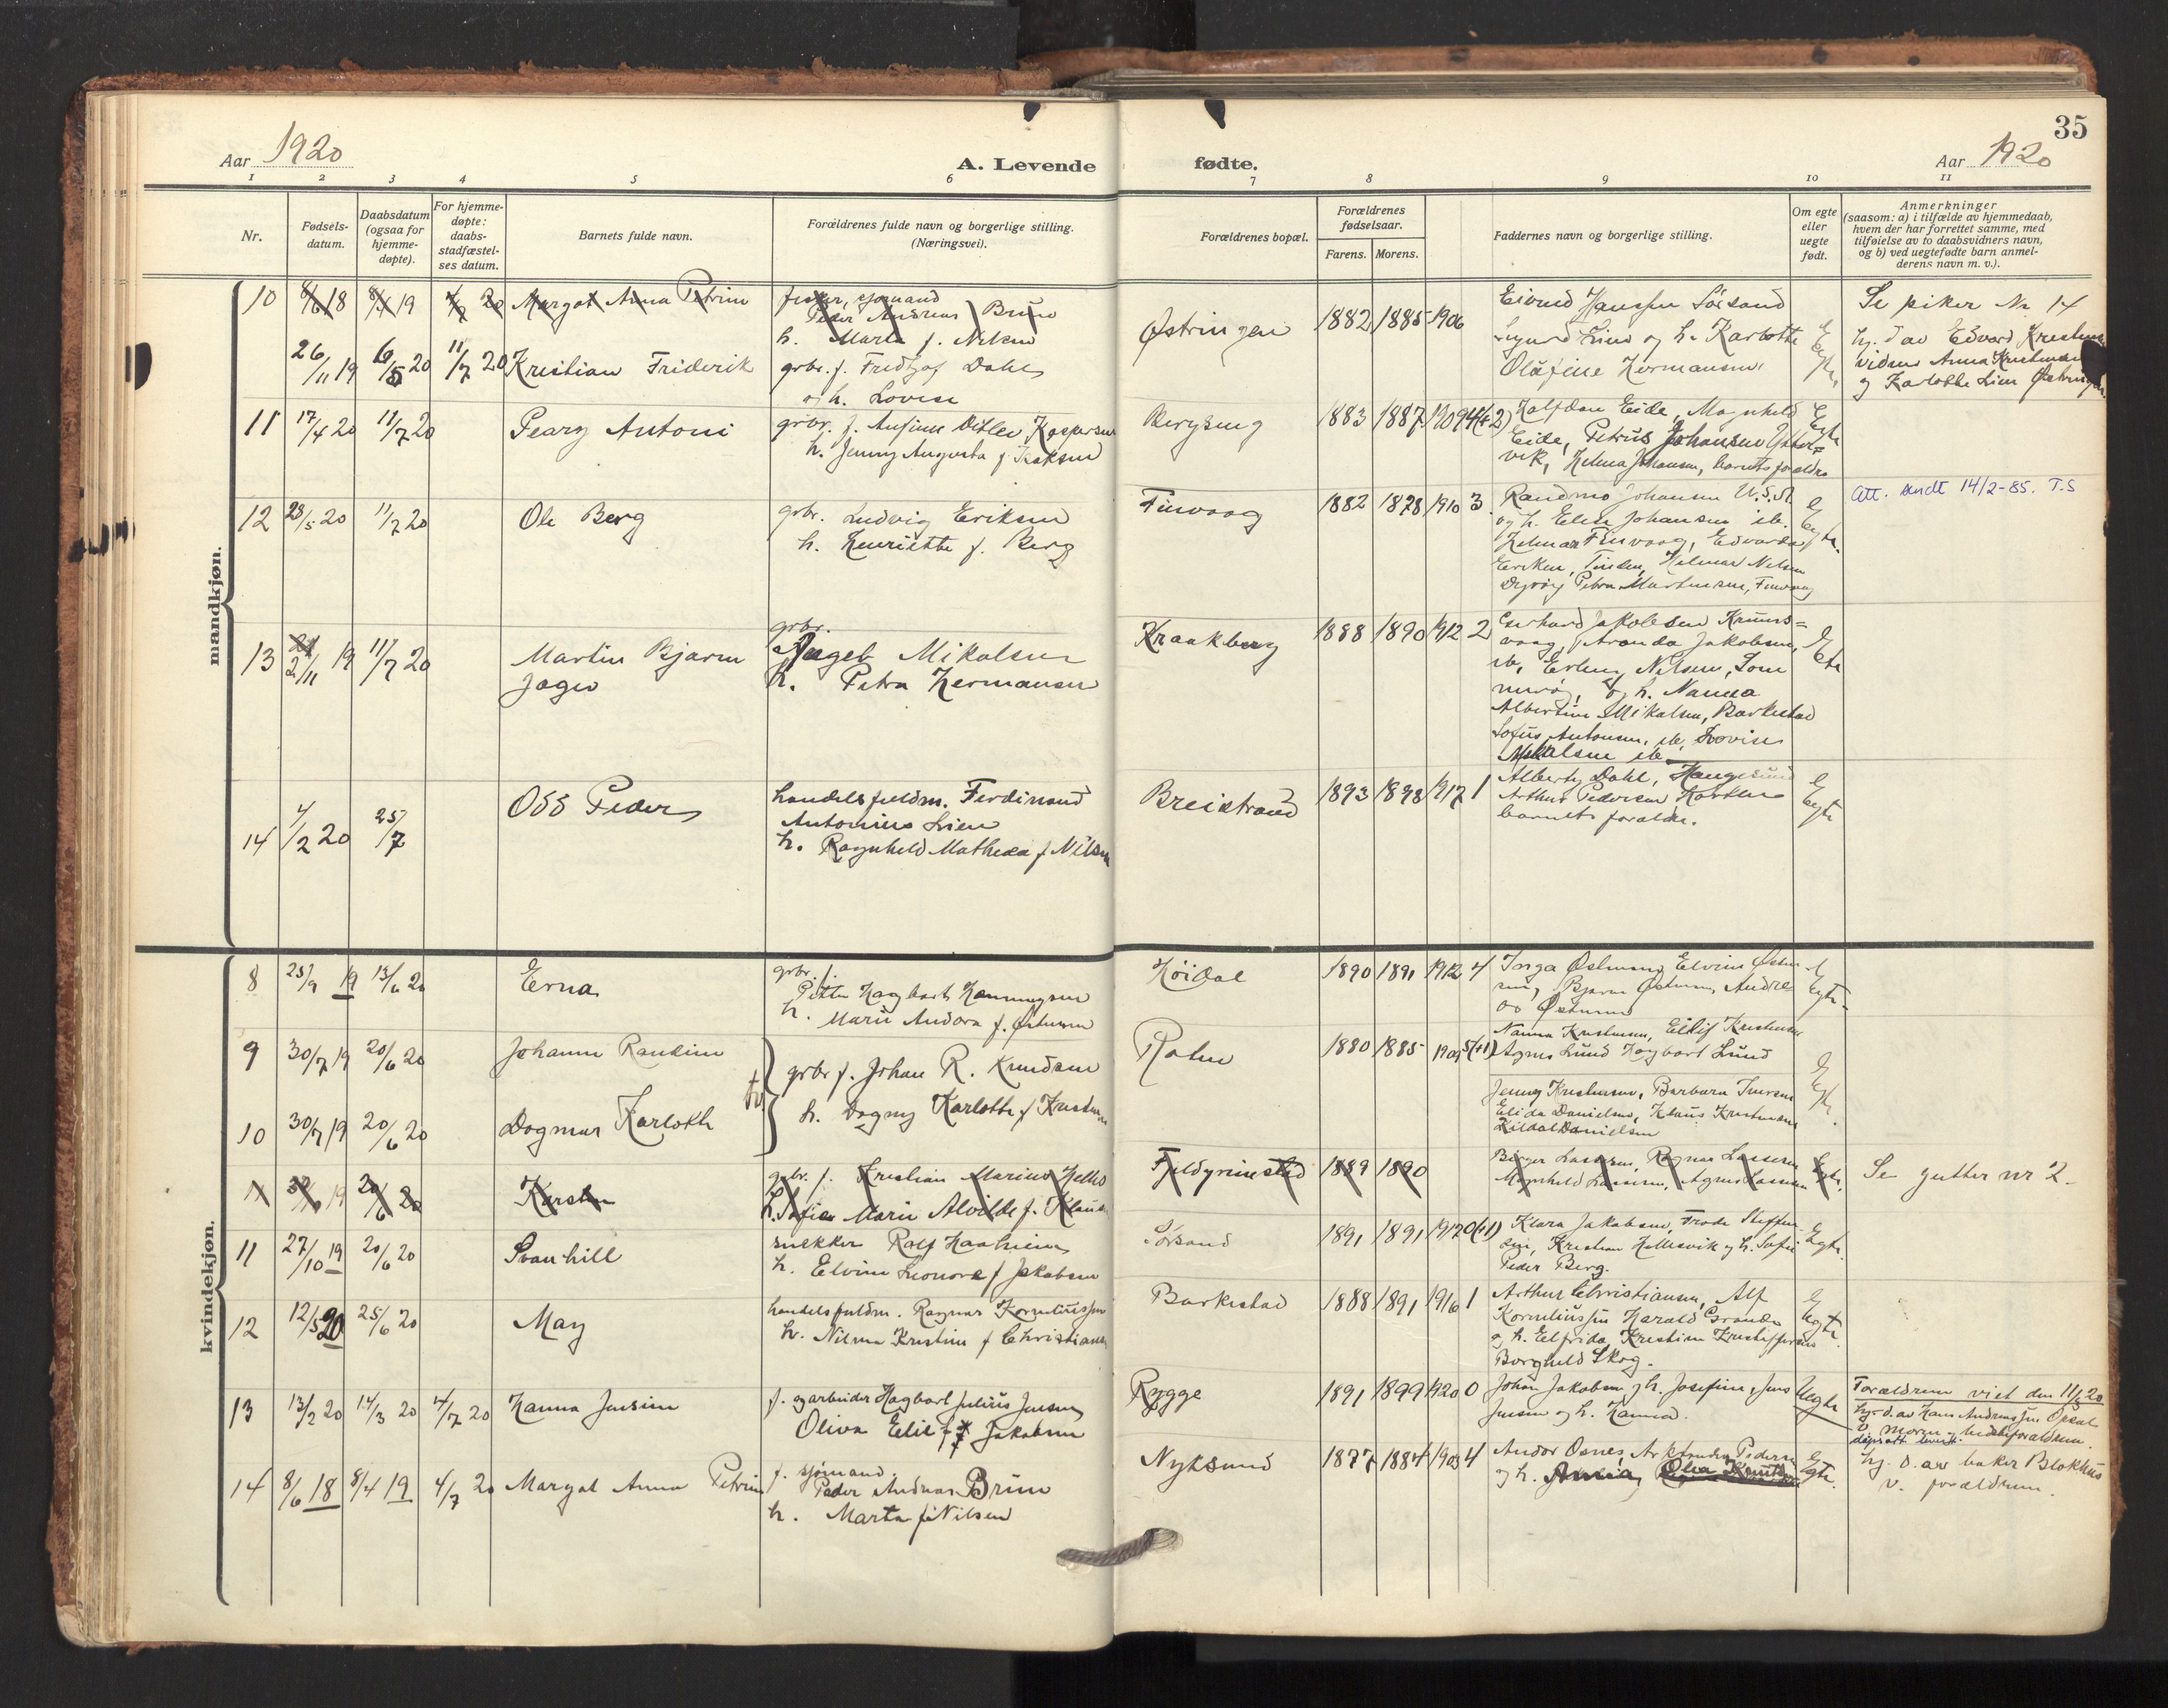 35
Aar 1920
A. Levende fødte.
Aar 1920
1 2 3 4 5 6 7 8 9 10 11
Nr.
Fødsels-
datum.
Daabsdatum
(ogsaa for
hjemme-
døpte).
For hjemme-
døpte:
daabs-
stadfæstel-
ses datum.
Barnets fulde navn.
Forældrenes fulde navn og borgerlige stilling.
(Næringsvei).
Forældrenes bopæl.
Forældrenes
fødselsaar.
Farens. Morens.
Faddernes navn og borgerlige stilling.
Om egte
eller
uegte
født.
Anmerkninger
(saasom: a) i tilfælde av hjemmedaab,
hvem der har forrettet samme, med
tilføielse av to daabsvidners navn,
og b) ved uegtefødte barn anmel-
derens navn m. v.).
mandkjøn.
10 8/6 18 8/4 19 4/7 20 Margot Anna Petrine
fisker, sjømand
Peder Andreas Brun
h. Marta f. Nilsen
26/11 19 6/5 20 11/7 20 Kristian Friderik
grbr. f. Fridtjof Dahl
og h. Lovise
Østringen 1882 1885 1906
Eivind Hanssen Sørsand
Sigurd Lind og h. Karlotte
Olufine Hermansen
Egte
Se piker Nr 14
hj. d av Edvard Kristens
vidner Anna Kristensen
og Karlotte Lien Østringen
11 17/4 20 11/7 20 Peary Antoni
grbr. f. Anfinn Ditlev Kaspersen
h. Jenny Augusta f. Isaksen
1883 1887 1909 4(+2)
Halfdan Eide, Magnhild
Eide, Petrus Johansen Ytter=
vik, Helma Johansen, barnets forældre
Egte
12 28/5 20 11/7 20 Ole Berg
grbr. Ludvig Eriksen
h. Henriette f. Berg
Finvaag 1882 1878 1910 3
Randmo Johansen U.S.A.
og h. Elise Johansen ib.
Helmar Finvaag, Edvarda
Eriksen, Tinden, Helmar Nilsen
Petra Martinsen, Finvaag
Egte.
Att. sendt 14/2-85. T.S
13 2/11 19 11/7 20 Martin Bjarne
Jager
grbr.
Aaget Mikalsen
h. Petra Hermansen
Kraakberg 1888 1890 1912 2
Gerhard Jakobsen Krims=
vaag, Aranda Jakobsen,
ib, Erling Nilsen, Som
og h. Nanna
Albertine Mikalsen, Barkestad
Sofus Antonsen, ib, Lovise
Mikalsen ib.
Egte
14 4/2 20 25/7 Odd Peder
handelsfuldm. Ferdinand
Antonius Lien
h. Ragnhild Mathea f Nilsen
Breistrand 1893 1898 1917 1
Alberty Dahl, Haugesund
Arthur Pedersen
barnets foraldr.
Egte
kvindekjøn.
8 25/9 19 13/6 20 Erna
grbr. f.
Petter Hagbart Henningsen
h. Marie Andora f. Østensen
Høidal 1890 1891 1912 4
Inga Østensen Elvine Østen
sen, Bjarne Østensen, Andre
as Østensen
Egte.
9 30/7 19 20/6 20 Johanne Randine
tv
grbr f. Johan R. Knudsen
h. Dagny Karlotte f Kristensen
10 30/7 19 20/6 20 Dagmar Karlotte
1880 1885 1909 5(+1)
Nanna Kristensen, Eilif Kristensen
Agnes Lund Hagbart Lund
Jenny Kristensen, Barbara Iversen
Elida Danielsen, Klaus Kristensen
Hildal Danielsen
Egte.
11 19 20/6 20 Karsten
grbr. f. Kristian Marius Helle
h. Sofie Marie Alvilde f. Klausen
Fjeldgrimstad 1889 1890
Birger Lassesen, Ragnar Lassesen
Magnhild Lassesen, Agnes Lassesen
Egte.
Se gutter nr 2.
11 27/10 19 20/6 20 Svanhill
snekker Rolf Haaheim
h. Elvine Leonora f Jakobsen
Sørsand 1891 1891 1917 0(+1)
Klara Jakobsen, Frode Steffen
sen, Kristian Hellesvik og h. Sofie
Peder Berg.
Egte.
12 12/5 20 25/6 20 May
handelsfuldm. Ragnar Korneliussen
h. Nilma Kristine f Christiansen
Barkestad 1888 1891 1916 1
Arthur Christiansen, Alf
Korneliussen Harald Grande
og h. Elfrida Kristine Kristoffersens
Borghild Skog.
Egte.
13 13/2 20 14/3 20 4/7 20 Hanna Jensine
f. og arbeider Hagbart Julius Jensen
Oliva Elise f Jakobsen
Rygge 1891 1899 1920 0
Johan Jakobsen og h. Josefine, Jens
Jensen og h. Hanna.
Uegte
Forældrene viet den 11/7 20
hj. d. av Hans Andreassen Opsal
v. moren og bedsteforældrene
14 8/6 18 8/4 19 4/7 20 Margot Anna Petrine
f. sjømand
Peder Andreas Brun
h. Marta f. Nilsen
Nyksund 1877 1884 1903 4
Andor Osnes, Pedersen
og h. Anna, Olea Knutsen
Egte.
hj. d. av baker Blokhus
v. forældrene.